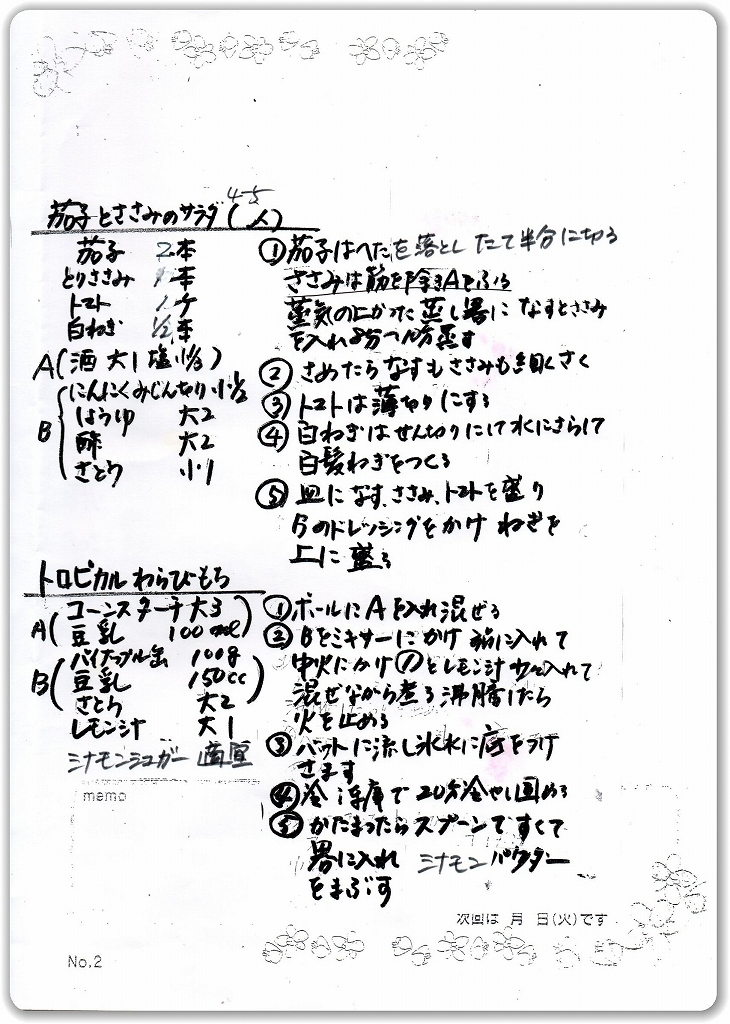 茄子とささみのサラダ(4-5人)
茄子 2本
とりささみ 本
トマト 1ケ
白ねぎ 1/2本
A(酒 大1 塩 小1/3)
B にんにくみじん切り 小1/2
しょうゆ 大2
酢 大2
さとう 小1
①茄子はへたを落とし たて半分に切る
ささみは筋を除きAをふる
蒸気の上がった蒸し器に なすとささみ
を入れ8分〜10分蒸す
②さめたらなすもささみも細くさく
③トマトは薄切りにする
④白ねぎはせん切りにして水にさらして
白髪ねぎをつくる
⑤皿になす、ささみ、トマトを盛り
Bのドレッシングをかけ ねぎを
上に盛る
トロピカルわらびもち
A(コーンスターチ 大3
豆乳 100ml)
B(パイナップル缶 100g
豆乳 150cc
さとう 大2)
レモン汁 大1
シナモンシュガー 適宜
①ボールにAを入れ混ぜる
②Bをミキサーにかけ 鍋に入れて
中火にかけ①とレモン汁を入れて
混ぜながら煮る 沸騰したら
火を止める
③バットに流し氷水に底をつけ
さます
④冷蔵庫で20分冷やし固める
⑤かたまったらスプーンですくて
器に入れ シナモンパウダー
をまぶす
memo
次回は 月 日(火)です
No.2